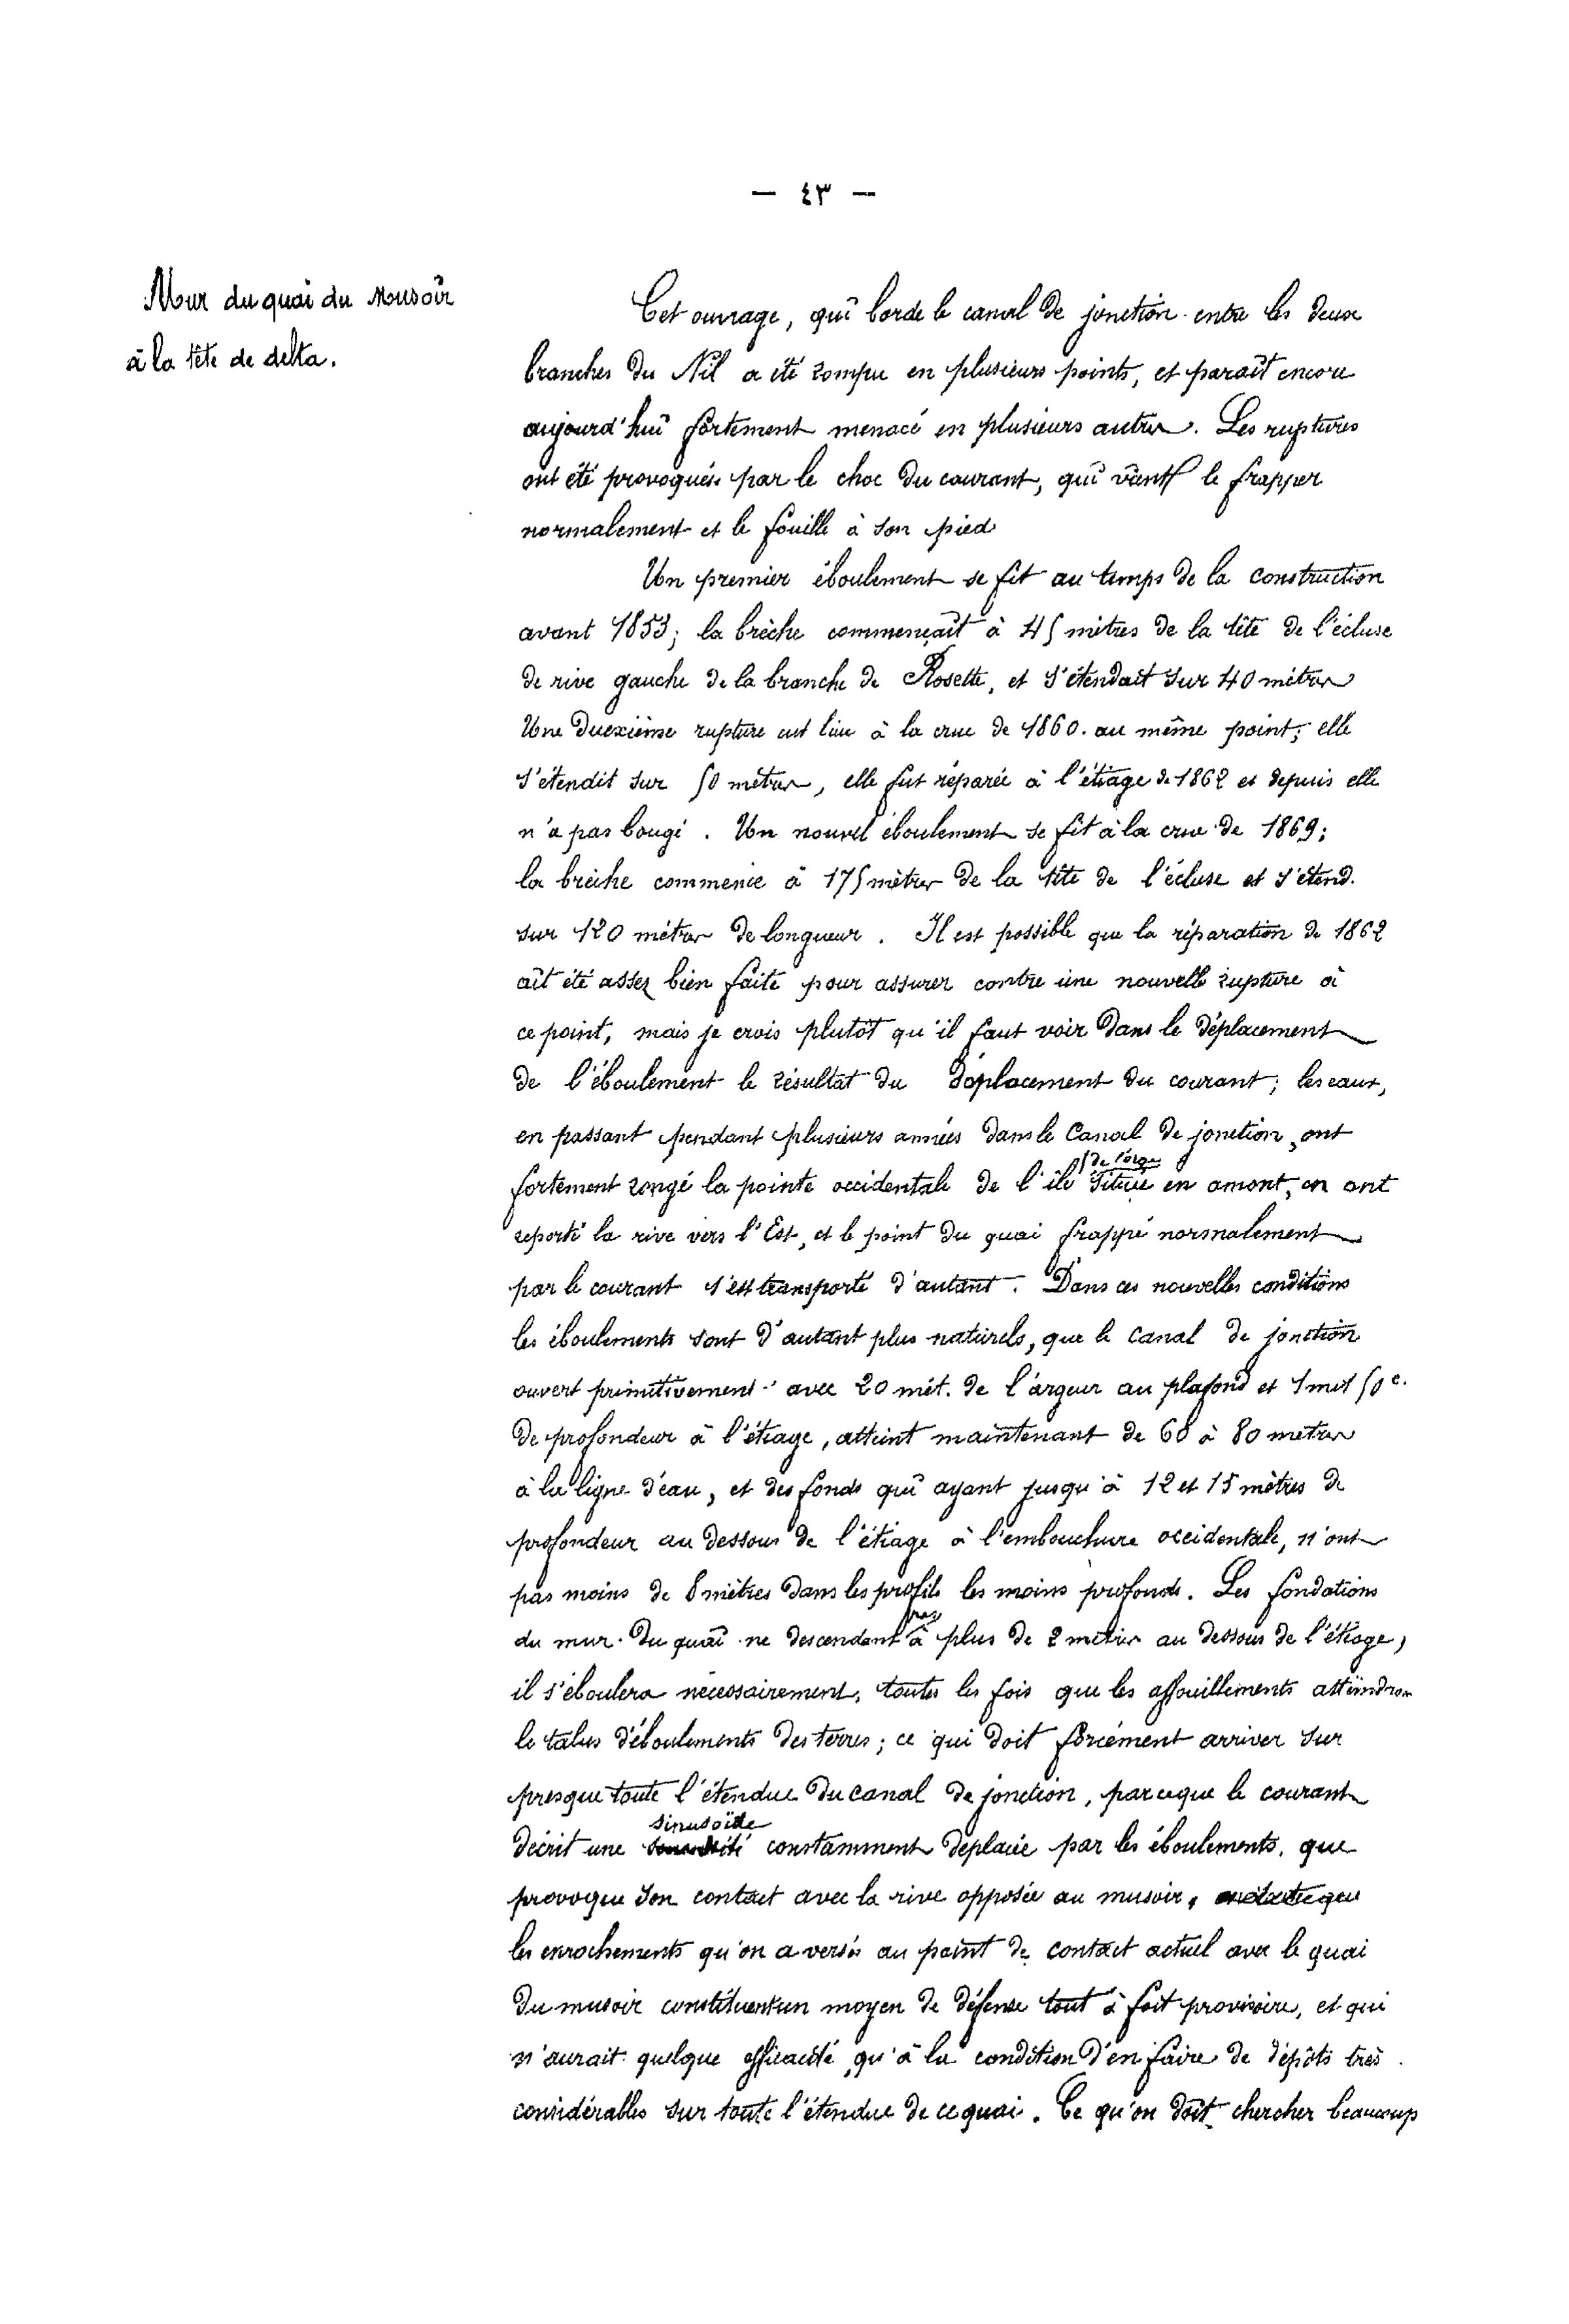 — ٤٣ —
Mur du quai du Musoir
à la tête de delta.
Cet ouvrage, qui borde le canal de jonction entre les deux
branches du Nil a été rompu en plusieurs points, et paraît encore
aujourd'hui fortement menacé en plusieurs autres. Les ruptures
ont été provoquées par le choc du courant, qui vient le frapper
normalement et le fouille à son pied
Un premier éboulement se fit au temps de la construction
avant 1853; la brèche commençait à 45 mètres de la tête de l'écluse
de rive gauche de la branche de Rosette, et s'étendait sur 40 mètres
Une duexième rupture eut lieu à la crue de 1860. au même point; elle
s'étendit sur 50 mètres, elle fut réparée à l'étiage de 1862 et depuis elle
n'a pas bougé. Un nouvel éboulement se fit à la crue de 1869;
la brèche commence à 175 mètres de la tête de l'écluse et s'étend.
sur 120 mètres de longueur. Il est possible que la réparation de 1862
ait été assez bien faite pour assurer contre une nouvelle rupture à
ce point, mais je crois plutôt qu'il faut voir dans le déplacement
de l'éboulement le résultat du déplacement du courant; les eaux,
en passant pendant plusieurs années dans le Canal de jonction, ont
fortement rongé la pointe occidentale de l'île située en amont, en ont
reporté la rive vers l'Est, et le point du quai frappé normalement
par le courant s'est transporté d'autant. Dans ces nouvelles conditions
les éboulements sont d'autant plus naturels, que le canal de jonction
ouvert primitivement avec 20 mèt. de largeur au plafond et 1 met 50 c.
de profondeur à l'étiage, atteint maintenant de 60 à 80 mètres
à la ligne d'eau, et des fonds qui ayant jusqu'à 12 et 15 mètres de
profondeur au dessous de l'étiage à l'embouchure occidentale, n'ont
pas moins de 8 mètres dans les profils les moins profonds. Les fondations
du mur du quai ne descendant pas à plus de 2 mètres au dessous de l'étiage,
il s'éboulera nécessairement, toutes les fois que les affouillements atteindron
le talus d'éboulements des terres; ce qui doit forcément arriver sur
presque toute l'étendue du canal de jonction, parceque le courant
décrit une sinusoïde constamment déplacée par les éboulements, que
provoque son contact avec la rive opposée au musoir,
les enrochements qu'on a versés au point de contact actuel avec le quai
du musoir constituent un moyen de défense tout à fait provisoire, et qui
n'aurait quelque efficacité, qu'à la condition d'en faire de dépôts très
considérables sur toute l'étendue de ce quai. Ce qu'on doit chercher beaucoup